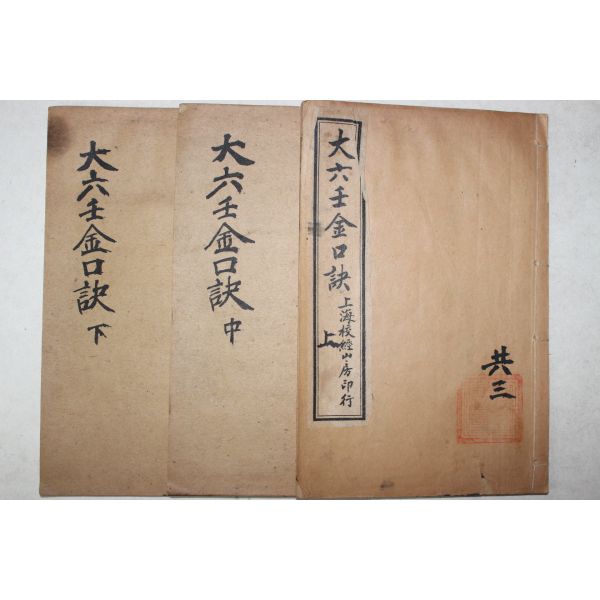 大六壬金口訣
上海校經山房印行
上
共三
大六壬金口訣
中
大六壬金口訣
下